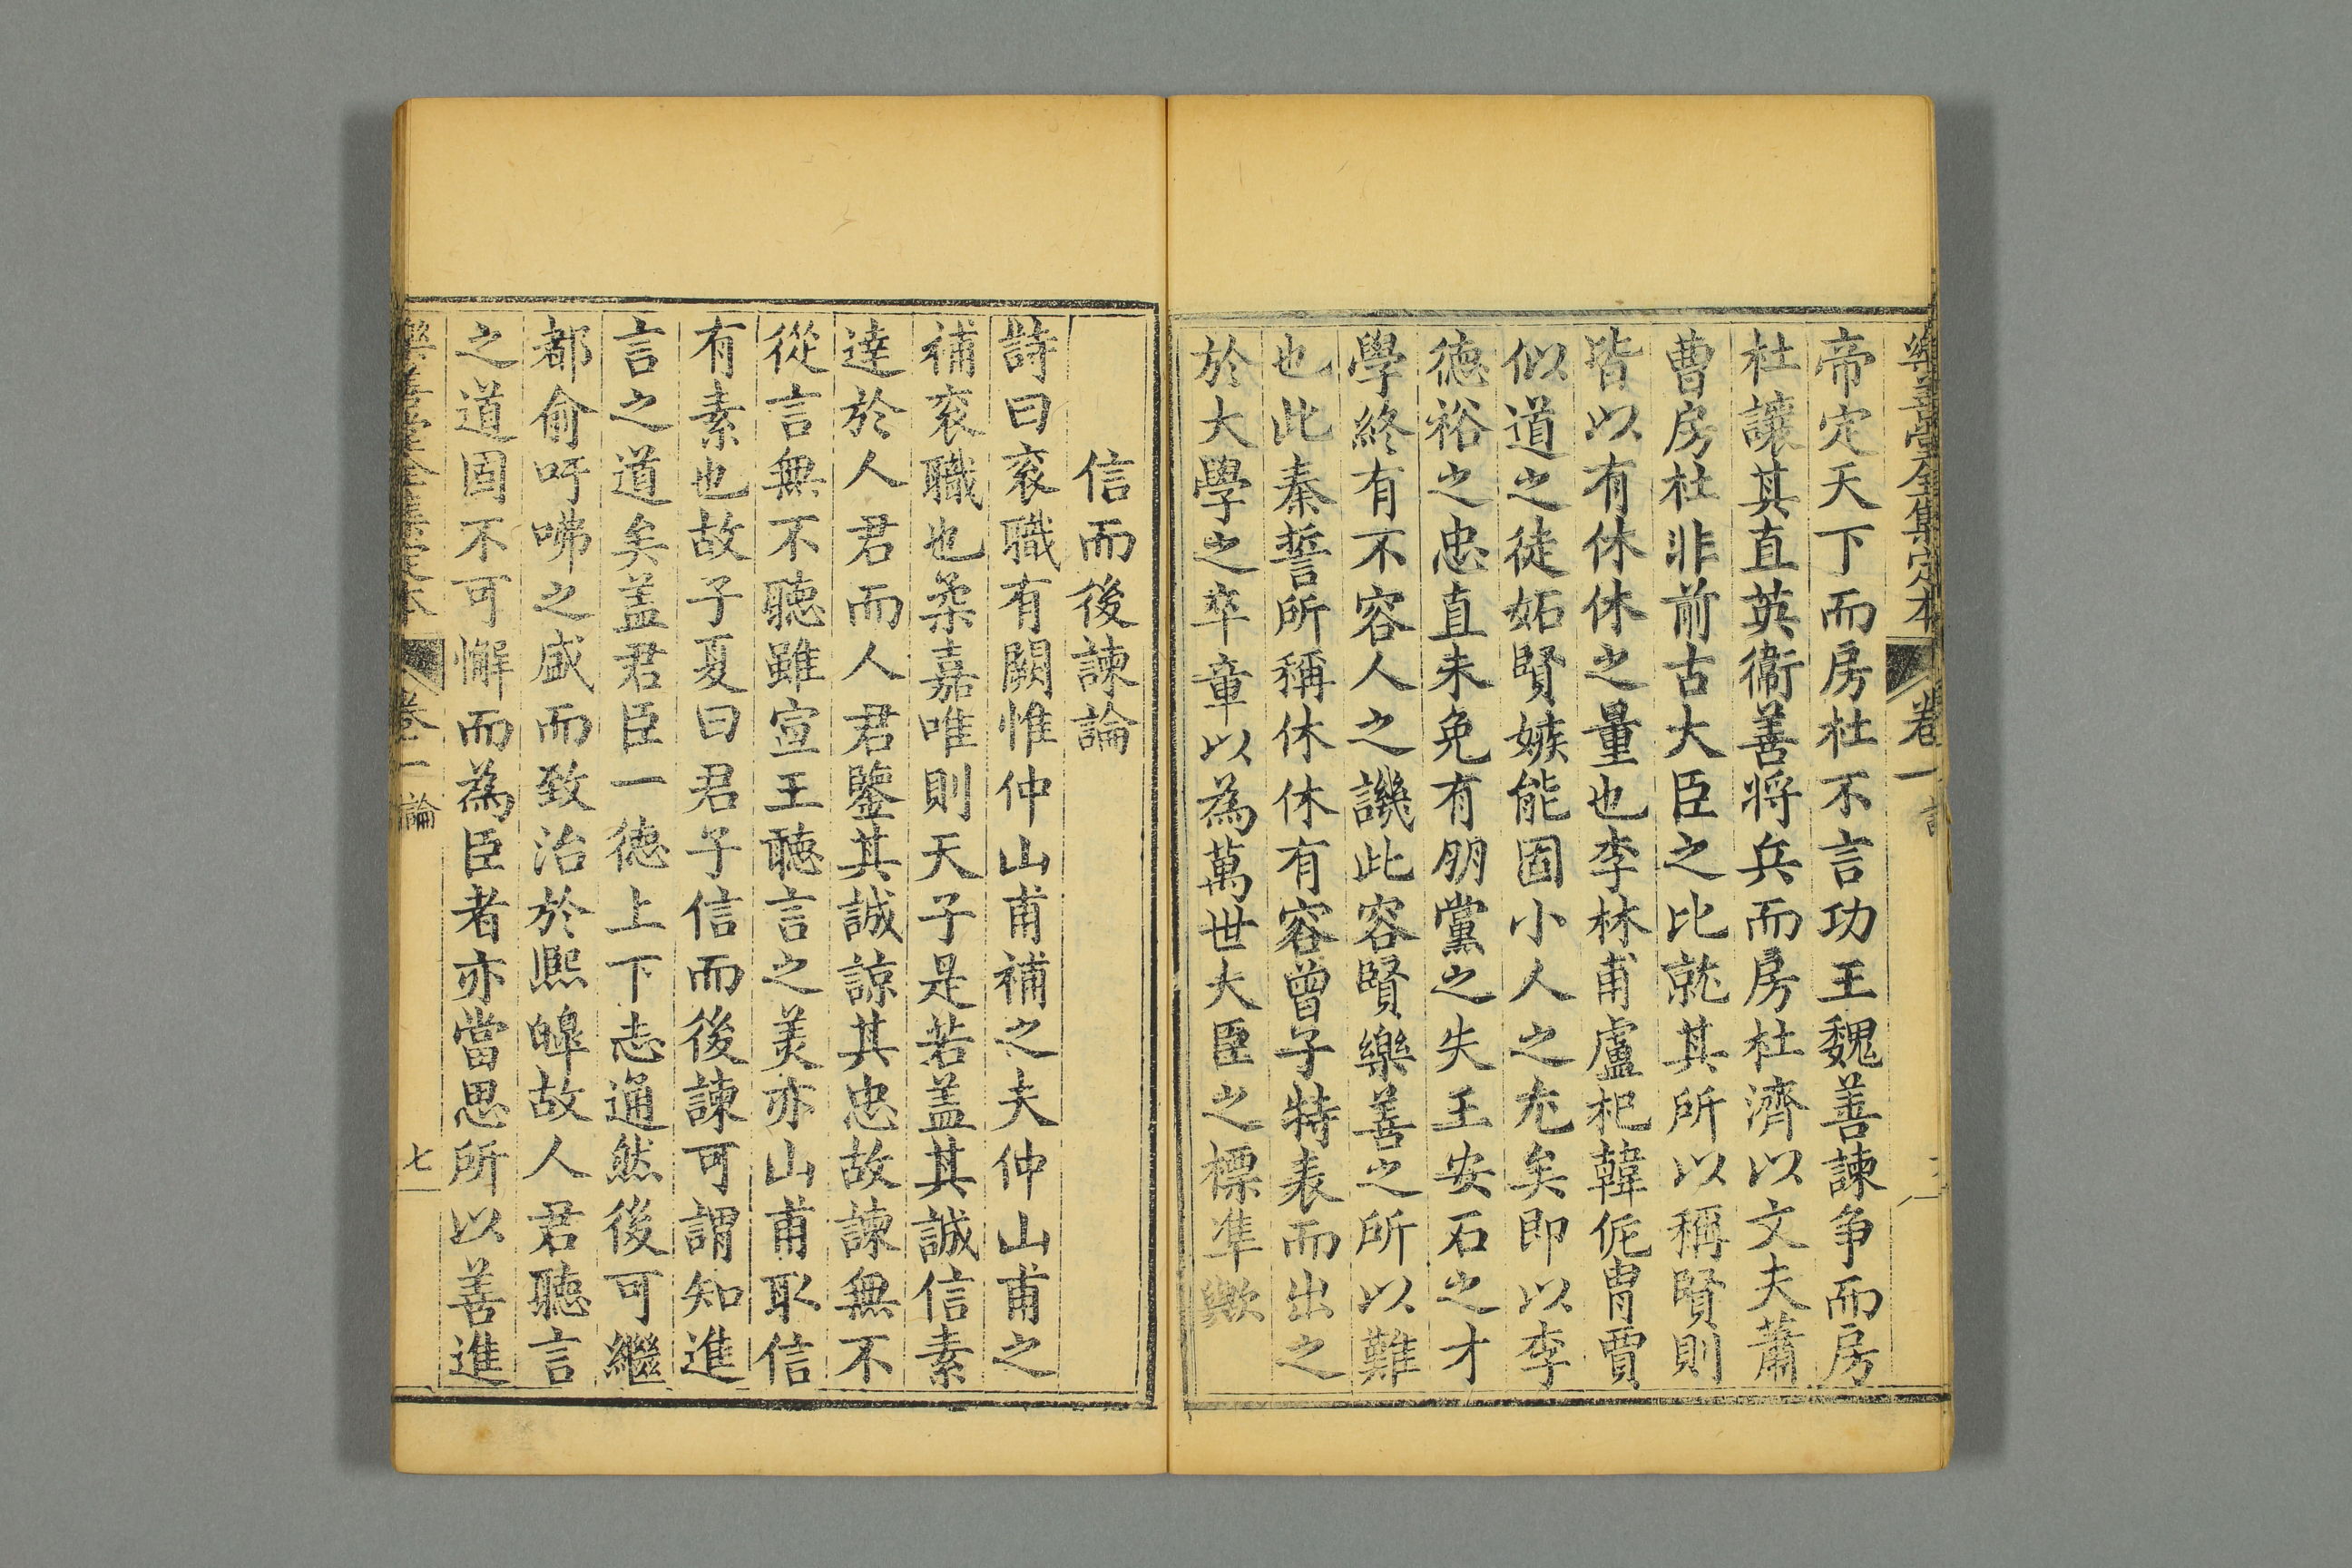 樂善堂全集定本 卷一
帝定天下而房杜不言功王魏善諫争而房
杜讓其直英衞善將兵而房杜濟以文夫蕭
曹房杜非前古大臣之比就其所以稱賢則
皆以有休休之量也李林甫盧杞韓侂胄賈
似道之徒妬賢嫉能固小人之尤矣即以李
德裕之忠直未免有朋黨之失王安石之才
學終有不容人之譏此容賢樂善之所以難
也此秦誓所稱休休有容曾子特表而出之
於大學之卒章以為萬世大臣之標準歟
信而後諫論
詩曰衮職有闕惟仲山甫補之夫仲山甫之
補衮職也柔嘉唯則天子是若盖其誠信素
達於人君而人君鑒其誠諒其忠故諫無不
從言無不聽雖宣王聽言之美亦山甫取信
有素也故子夏曰君子信而後諫可謂知進
言之道矣盖君臣一德上下志通然後可繼
都俞吁咈之盛而致治於熙皥故人君聽言
之道固不可懈而為臣者亦當思所以善進
樂善堂全集定本 卷一 論 七